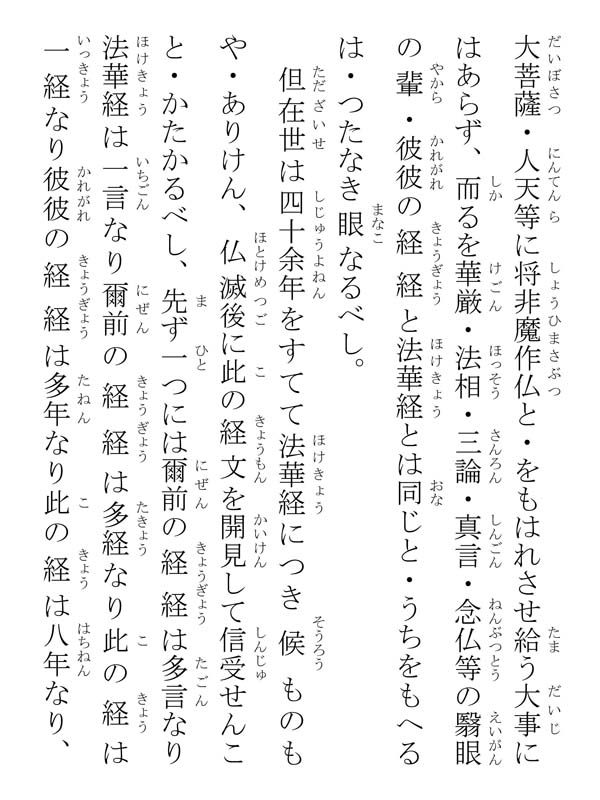 大菩薩・人天等に将非魔作仏と・をもはれさせ給う大事に
はあらず、而るを華厳・法相・三論・真言・念仏等の翳眼
の輩・彼彼の経経と法華経とは同じと・うちをもへる
は・つたなき眼なるべし。
但在世は四十余年をすてて法華経につき候ものも
や・ありけん、仏滅後に此の経文を開見して信受せんこ
と・かたかるべし、先ず一つには爾前の経経は多言なり
法華経は一言なり爾前の経経は多経なり此の経は
一経なり彼彼の経経は多年なり此の経は八年なり、